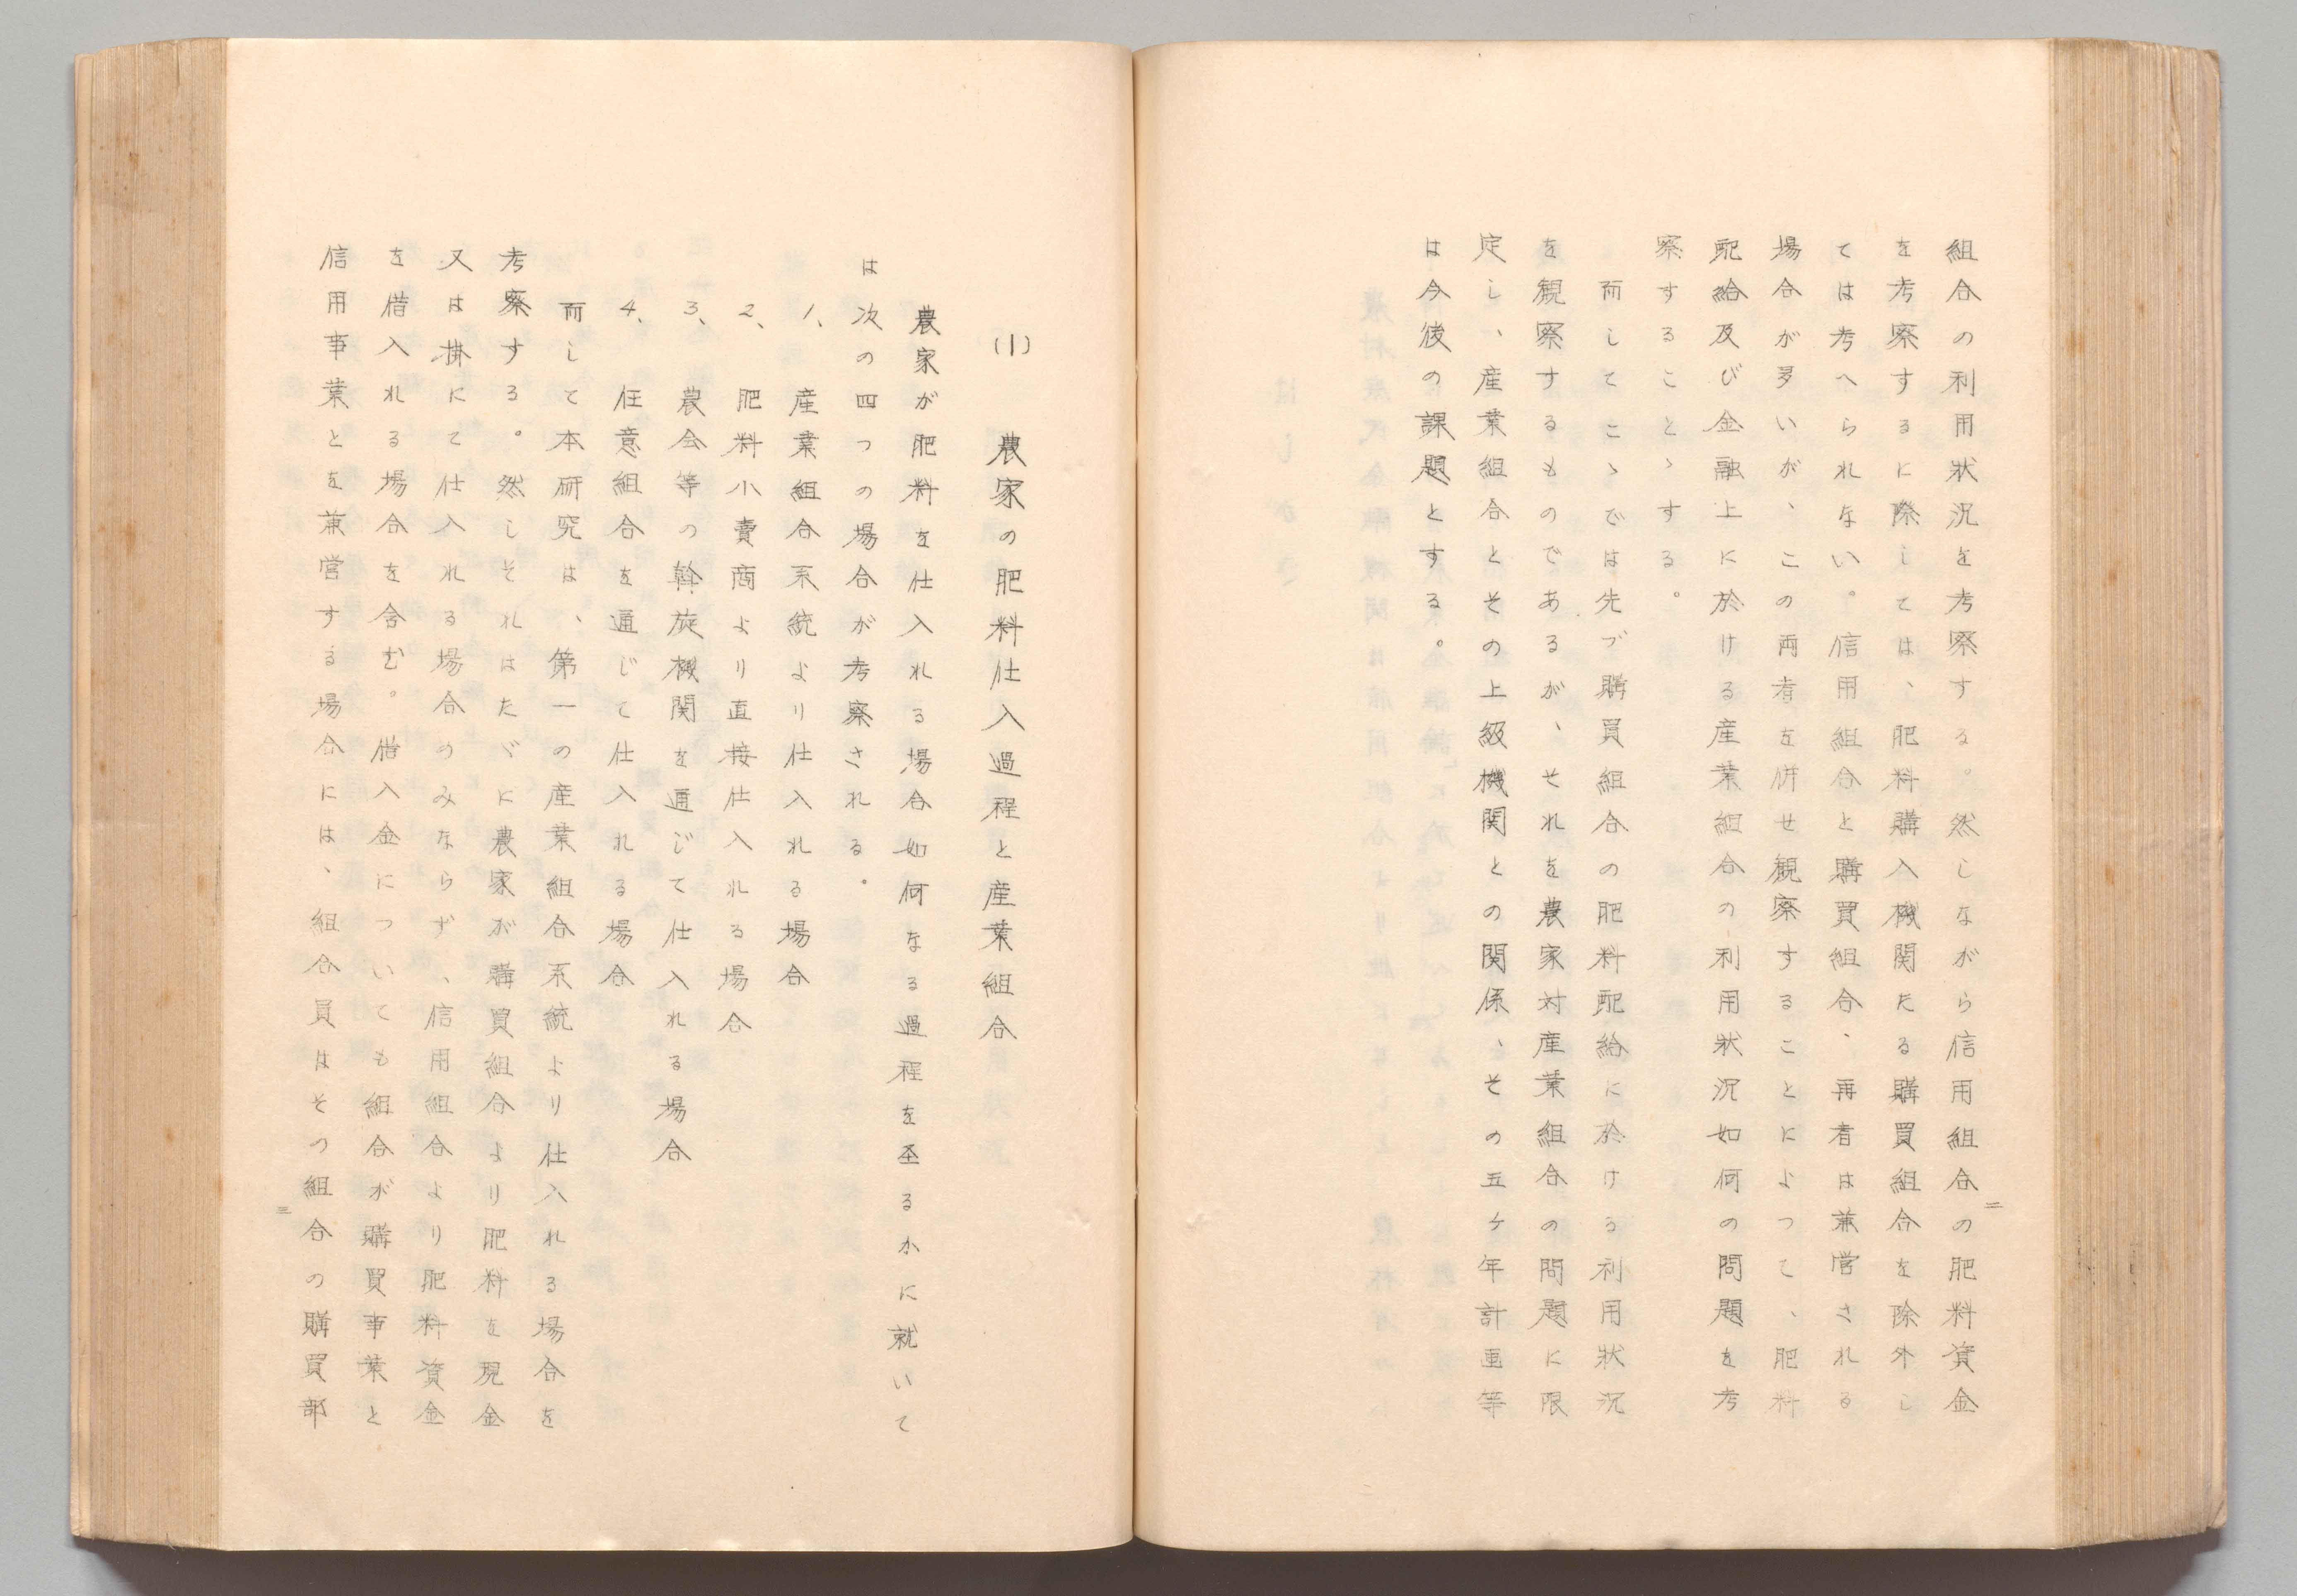 組合の利用状況を考察する。然しながら信用組合の肥料資金
を考察するに際しては、肥料購入機関たる購買組合を除外し
ては考へられない。信用組合と購買組合、再者は兼営される
場合が多いが、この両者を併せ観察することによつて、肥料
配給及び金融上に於ける産業組合の利用状況如何の問題を考
察することゝする。
而してこゝでは先づ購買組合の肥料配給に於ける利用状況
を観察するものであるが、それを農家対産業組合の問題に限
定し、産業組合とその上級機関との関係、その五ヶ年計画等
は今後の課題とする。
二
(1) 農家の肥料仕入過程と産業組合
農家が肥料を仕入れる場合如何なる過程を至るかに就いて
は次の四つの場合が考察される。
1、産業組合系統より仕入れる場合
2、肥料小賣商より直接仕入れる場合
3、農会等の斡旋機関を通じて仕入れる場合
4、任意組合を通じて仕入れる場合
而して本研究は、第一の産業組合系統より仕入れる場合を
考察する。然しそれはたゞに農家が購買組合より肥料を現金
又は掛にて仕入れる場合のみならず、信用組合より肥料資金
を借入れる場合を含む。借入金についても組合が購買事業と
信用事業とを兼営する場合には、組合員はその組合の購買部
三